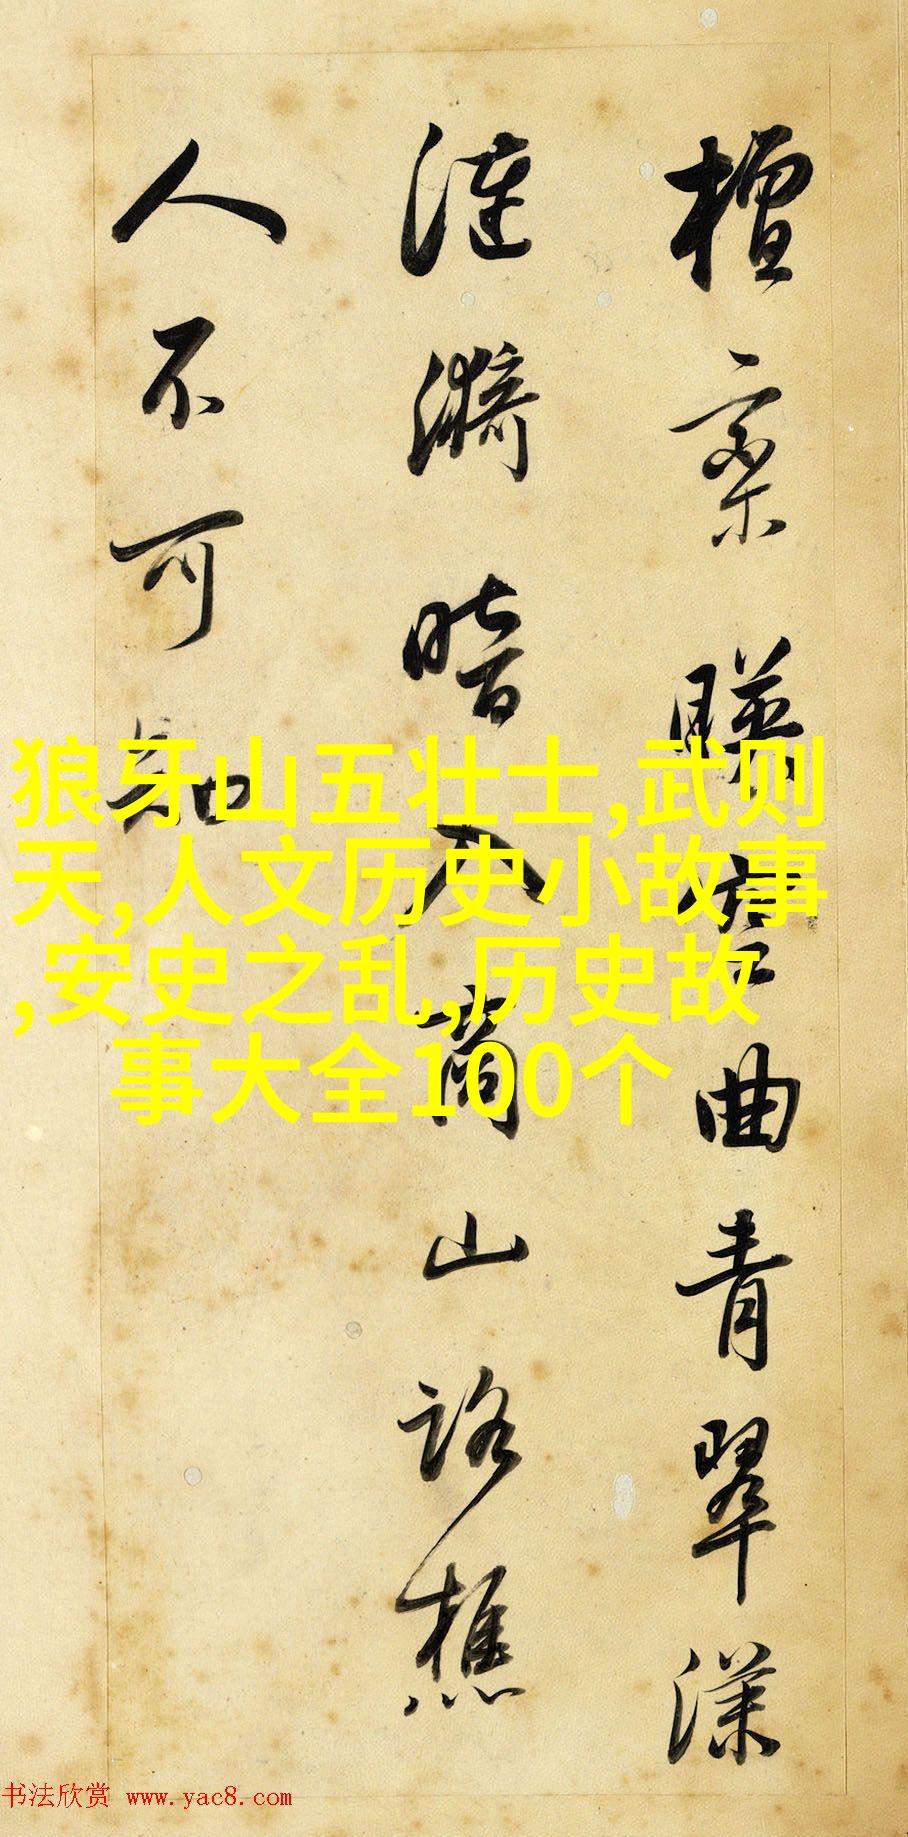 檀栾暎空曲青翠漾
漣漪暗入商山路樵
人不可知
狼牙山五壮士,武则
天,人文历史小故事
,安史之乱,历史故
事大全100个
书法欣赏 www.yac8.com